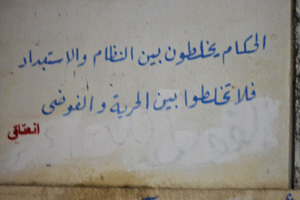 الحكام يخلطون بين النظام والاستبداد
فلا تخلطوا بين الحرية والفوضى
انعتاقي